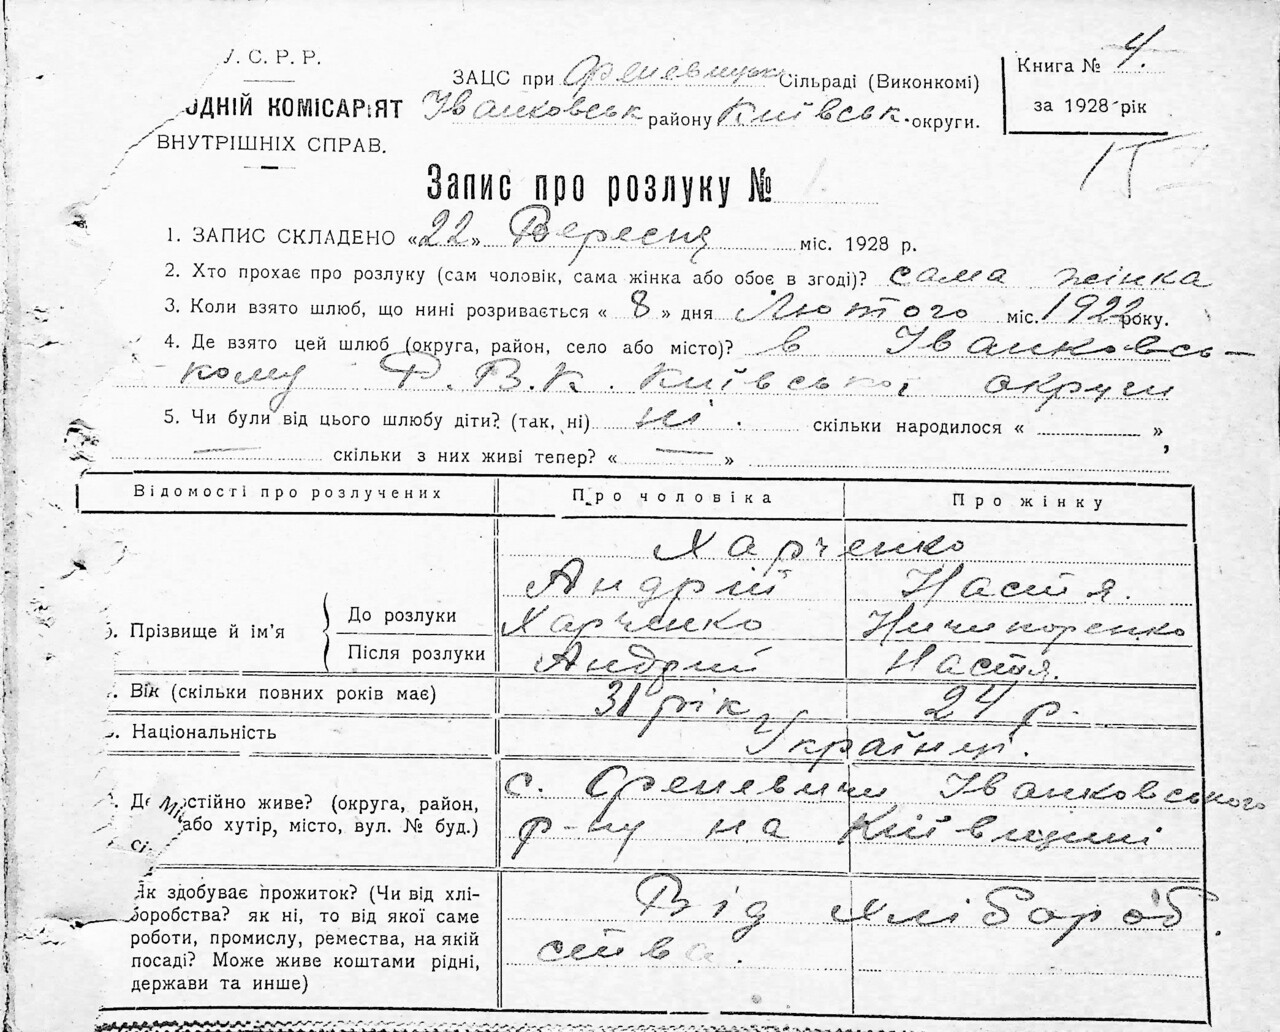 У. С. Р. Р.
ОДНІЙ КОМІСАРІЯТ
ВНУТРІШНІХ СПРАВ.
ЗАЦС при Феневицьк Сільраді (Виконкомі)
Іванковськ району Київськ. округи.
Книга № 4.
за 1928 рік
Запис про розлуку № 1.
1. ЗАПИС СКЛАДЕНО «22» Вересня міс. 1928 р.
2. Хто прохає про розлуку (сам чоловік, сама жінка або обоє в згоді)? сама жінка
3. Коли взято шлюб, що нині розривається « 8 » дня Лютого міс. 1922 року.
4. Де взято цей шлюб (округа, район, село або місто)? в Іванковсь-
кому Р.В.К. Київської округи
5. Чи були від цього шлюбу діти? (так, ні) ні. скільки народилося « »,
— скільки з них живі тепер? « — »
Відомості про розлучених Про чоловіка Про жінку
Харченко
Андрій Настя.
6. Прізвище й ім'я До розлуки Харченко Ничипоренко
Після розлуки Андрий Настя.
Вік (скільки повних років має) 31 рік 24 р.
Національність Українці.
с. Феневичи Іванковського
Де постійно живе? (округа, район,
або хутір, місто, вул. № буд.) р-ну на Київщині
Як здобуває прожиток? (Чи від хлі-
боробства? як ні, то від якої саме
роботи, промислу, ремества, на якій
посаді? Може живе коштами рідні,
держави та инше)
Від хлібороб.
ства.